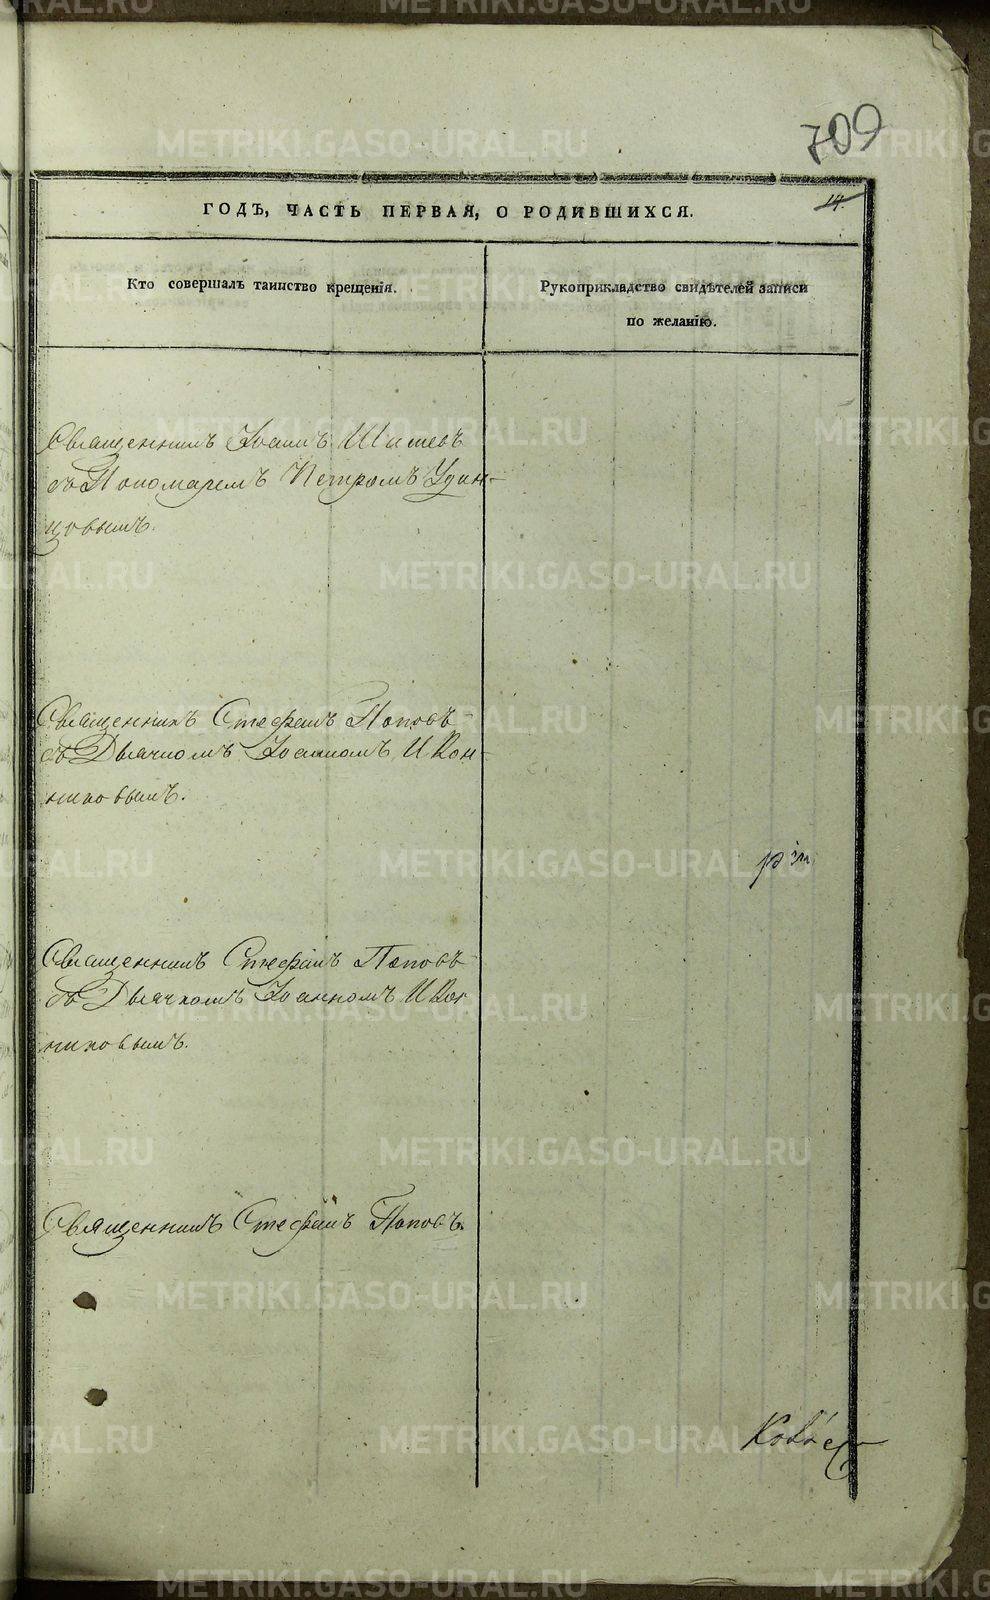 709
14.
ГОДЪ, ЧАСТЬ ПЕРВАЯ, О РОДИВШИХСЯ.
Кто совершалъ таинство крещенія.
Рукоприкладство свидѣтелей записи
по желанію.
Священникъ Іоаннъ Шишевъ
съ Пономаремъ Петромъ Удин-
цовымъ.
Священникъ Стефанъ Поповъ
съ Дьячкомъ Іоанномъ Икон-
никовымъ.
Священникъ Стефанъ Поповъ
съ Дьячкомъ Іоанномъ Икон
никовымъ.
Священникъ Стефанъ Поповъ.
METRIKI.GASO-URAL.RU